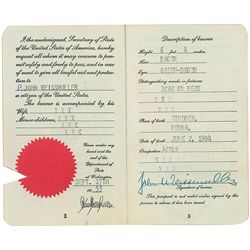 I the undersigned, Secretary of State
of the United States of America, hereby
request all whom it may concern to per-
mit safely and freely to pass, and in case
of need to give all lawful aid and protec-
tion to
P. JOHN WEISSMULLER
a citizen of the United States.
The bearer is accompanied by his
Wife, X X X
Minor children, X X X
X X X
Given under my
hand and the
seal of the
Department of
State
at Washington,
SEPT. 11TH
3
Description of bearer
Height 6 feet 4 inches
Hair BROWN
Eyes GREEN-BROWN
Distinguishing marks or features:
SCAR ON NECK
X X X
X X X
Place of birth WINDBER,
PENNA.
Date of birth JUNE 2, 1904
Occupation ACTOR
X X X
John Weissmuller
Signature of bearer
This passport is not valid unless signed by the
person to whom it has been issued.
3